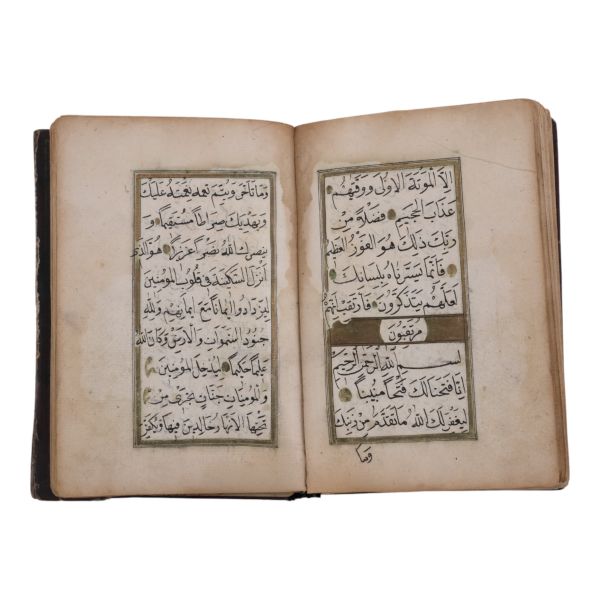 الا الموتة الاولى ووقيهم
عذاب الجحيم فضلا من
ربك ذلك هو الفوز العظيم
فانما يسرناه بلسانك
لعلهم يتذكرون فارتقب انهم
مرتقبون
بسم الله الرحمن الرحيم
انا فتحنا لك فتحا مبينا
ليغفر لك الله ما تقدم من ذنبك
وما
وما تاخر ويتم نعمته عليك
ويهديك صراطا مستقيما و
ينصرك الله نصرا عزيزا هو الذى
انزل السكينة في قلوب المؤمنين
ليزدادوا ايمانا مع ايمانهم ولله
جنود السموات والارض وكان الله
عليما حكيما ليدخل المؤمنين
والمؤمنات جنات تجرى من
تحتها الانهار خالدين فيها ويكفر